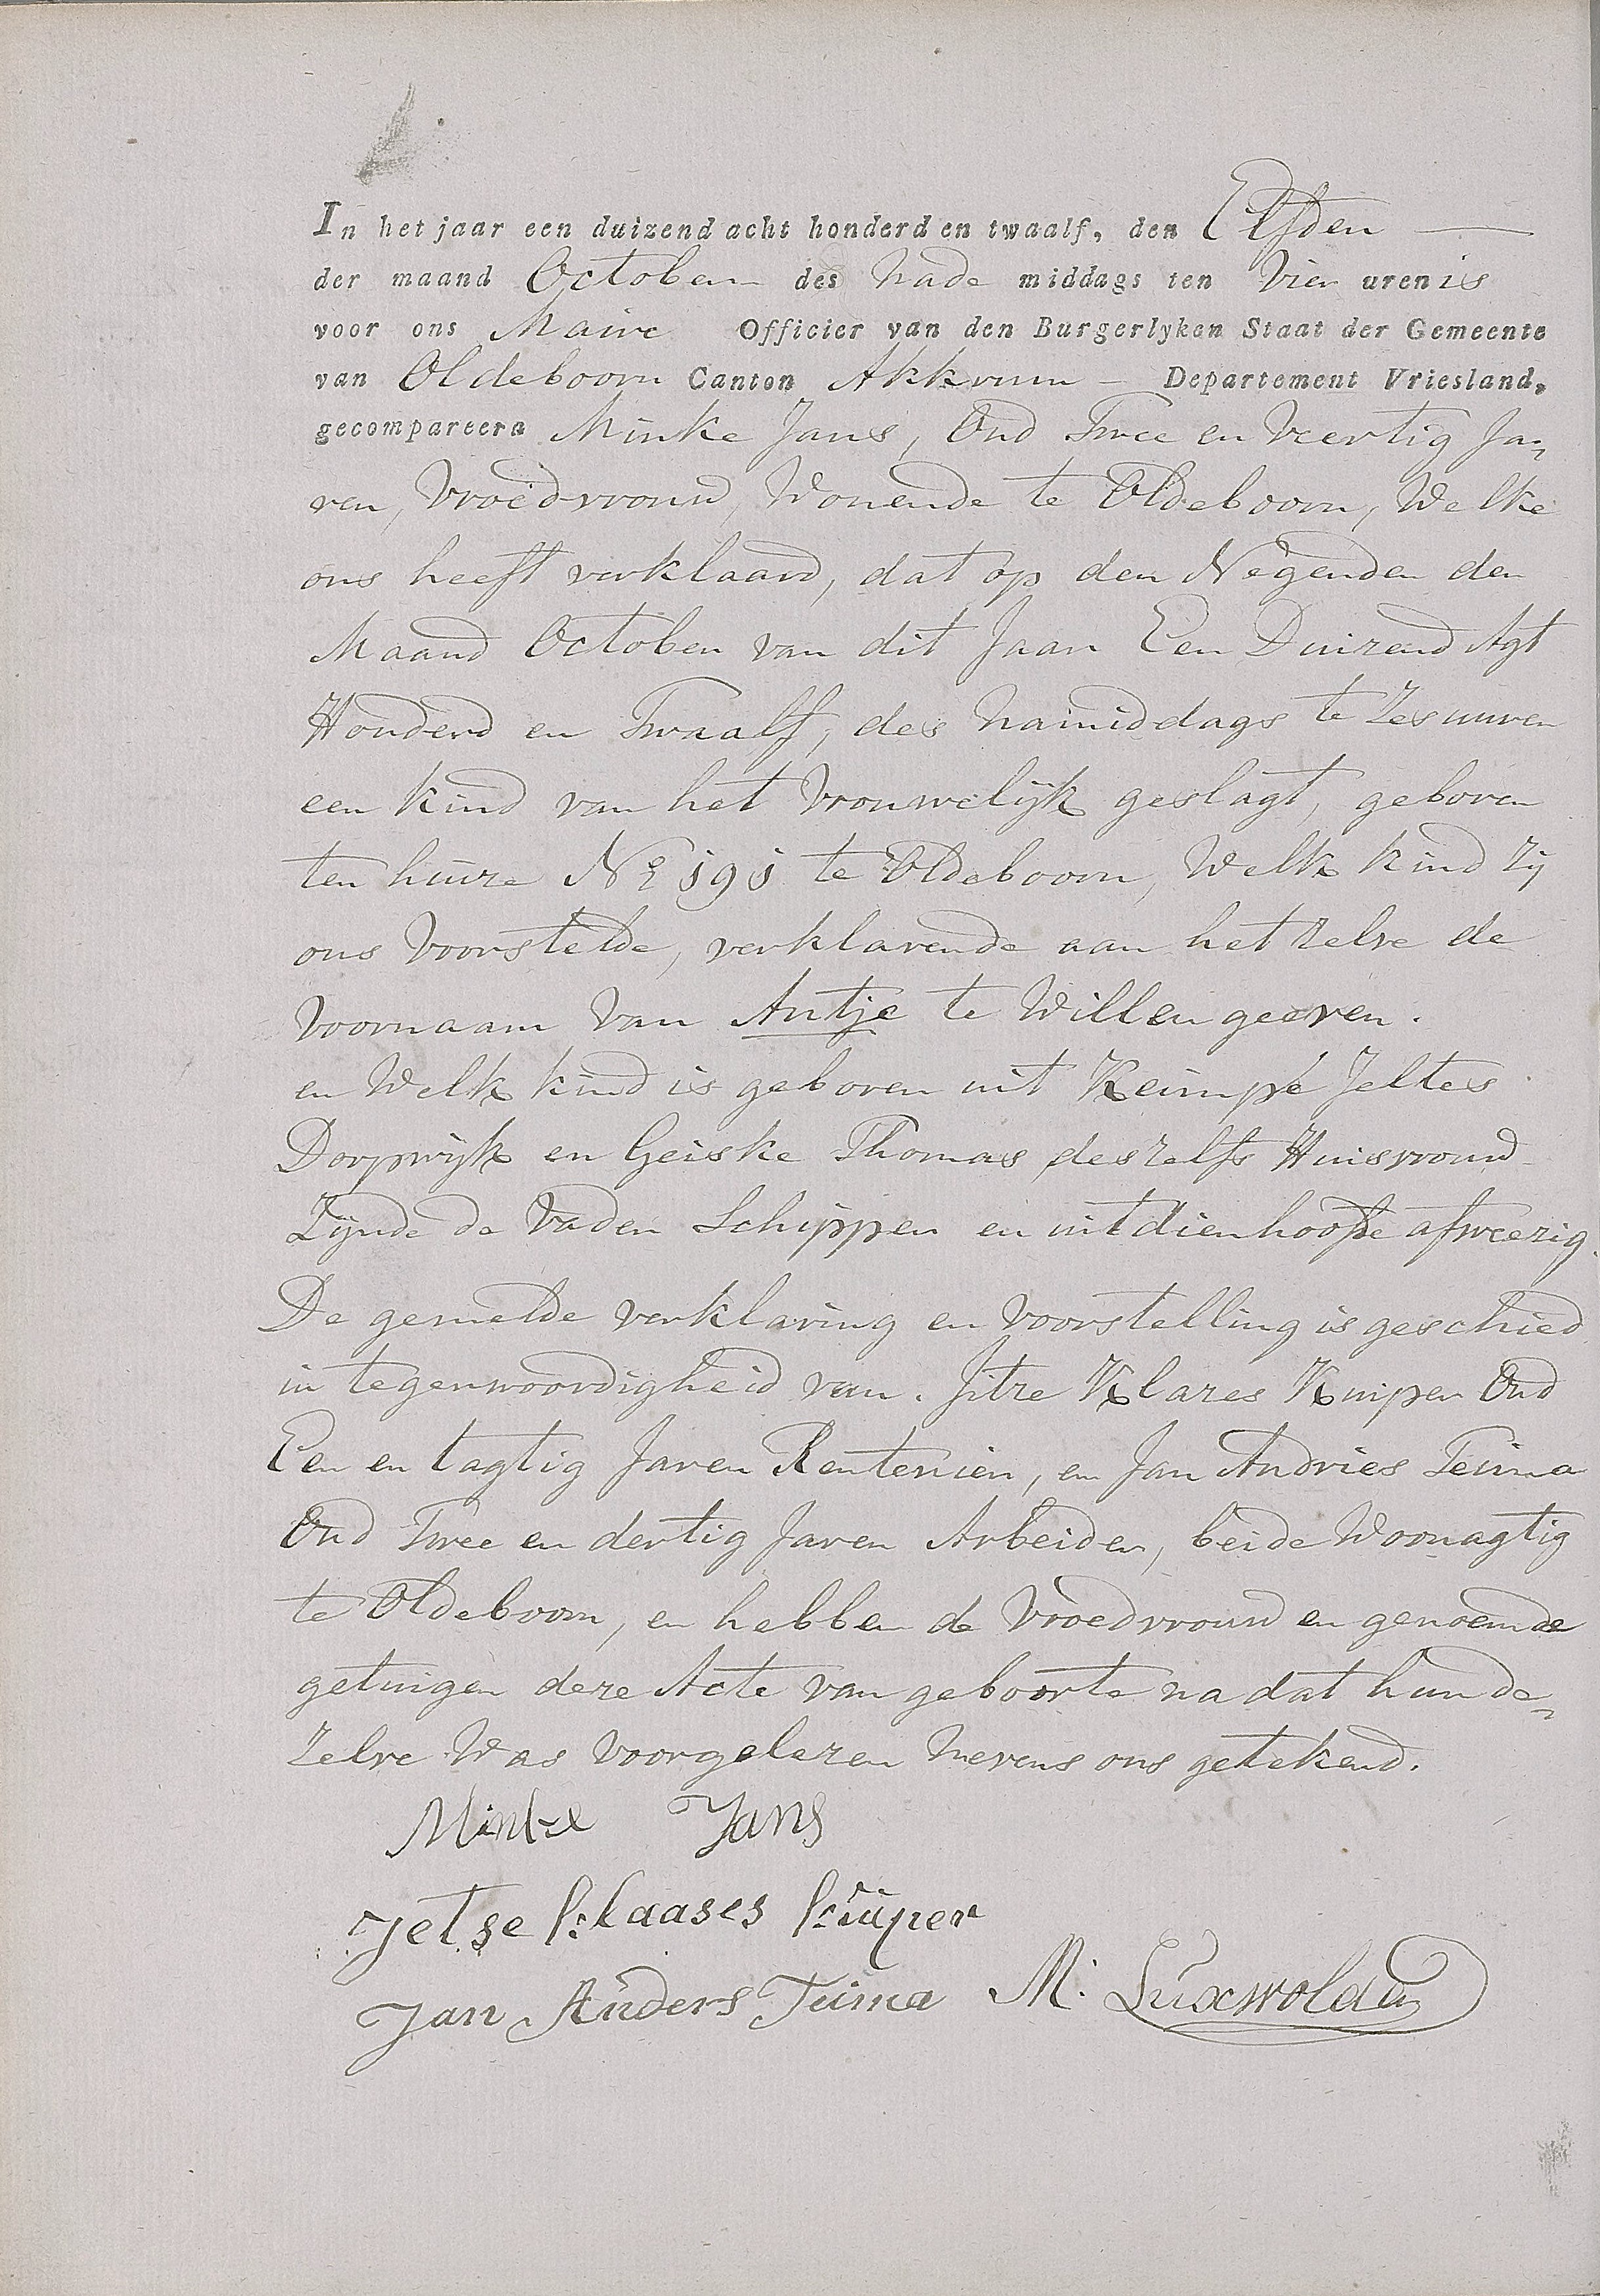 In het jaar een duizend acht honderd en twaalf, den Elfden —
der maand October des Nade middags ten Vier uren is
voor ons Maire Officier van den Burgerlyken Staat der Gemeente
van Oldeboorn Canton Akkrum — Departement Vriesland,
gecompareerd Minke Jans, Oud Twee en Veertig Ja„
ren, Vroedvrouw, Wonende te Oldeboorn, Welke
ons heeft verklaard, dat op den Negenden der
Maand October van dit Jaar Een Duizend Agt
Honderd en Twaalf, des Namiddags te Zes uuren
een kind van het Vrouwelijk geslagt, geboren
ten huize No 191 te Oldeboorn, Welk kind zij
ons Voorstelde, verklarende aan het zelve de
Voornaam van Antje te Willen geeven.
en Welk kind is geboren uit Keimpe Jeltes
Dorpwijk en Geiske Thomas deszelfs Huisvrouw
Zijnde de Vader Schipper en uit dien hoofde afweezig.
De gemelde verklaring en Voorstelling is geschied
in tegenwoordigheid van. Jitze Klazes Kuiper Oud
Een en tagtig Jaren Rentenier, en Jan Andries Teima
Oud Twee en dertig Jaren Arbeider, beide Woonagtig
te Oldeboorn, en hebben de Vroedvrouw en genoemde
getuigen deze Acte van geboorte na dat hun de„
zelve Was Voorgelezen Nevens ons getekend.
Minke Jans
Jetse Klaases Kuiper
Jan Anders Teima M: Luxwolda